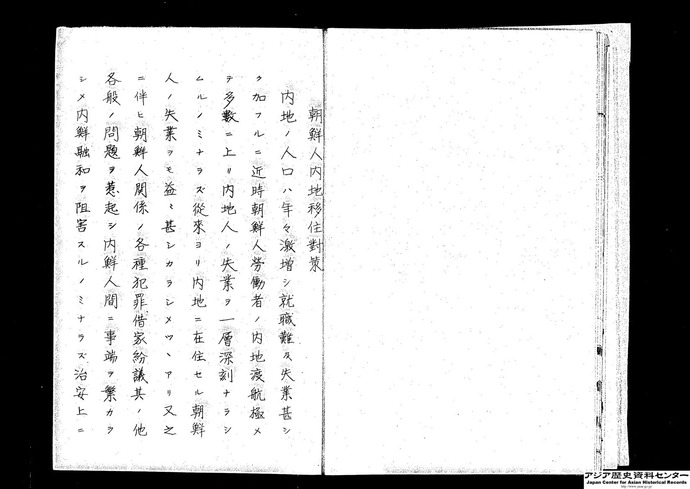 朝鮮人内地移住對策
内地ノ人口ハ年々激増シ就職難及失業甚シ
ク加フルニ近時朝鮮人労働者ノ内地渡航極メ
テ多數ニ上リ内地人ノ失業ヲ一層深刻ナラシ
ムルノミナラズ從來ヨリ内地ニ在住セル朝鮮
人ノ失業ヲモ益々甚シカラシメツヽアリ又之
ニ伴ヒ朝鮮人関係ノ各種犯罪借家紛議其ノ他
各般ノ問題ヲ惹起シ内鮮人間ニ事端ヲ繁カラ
シメ内鮮融和ヲ阻害スルノミナラズ治安上ニ
アジア歴史資料センター
Japan Center for Asian Historical Records
http://www.jacar.go.jp/